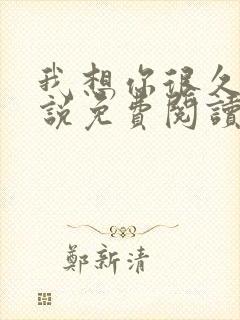 我想你很久
説免費閱讀
鄭新清